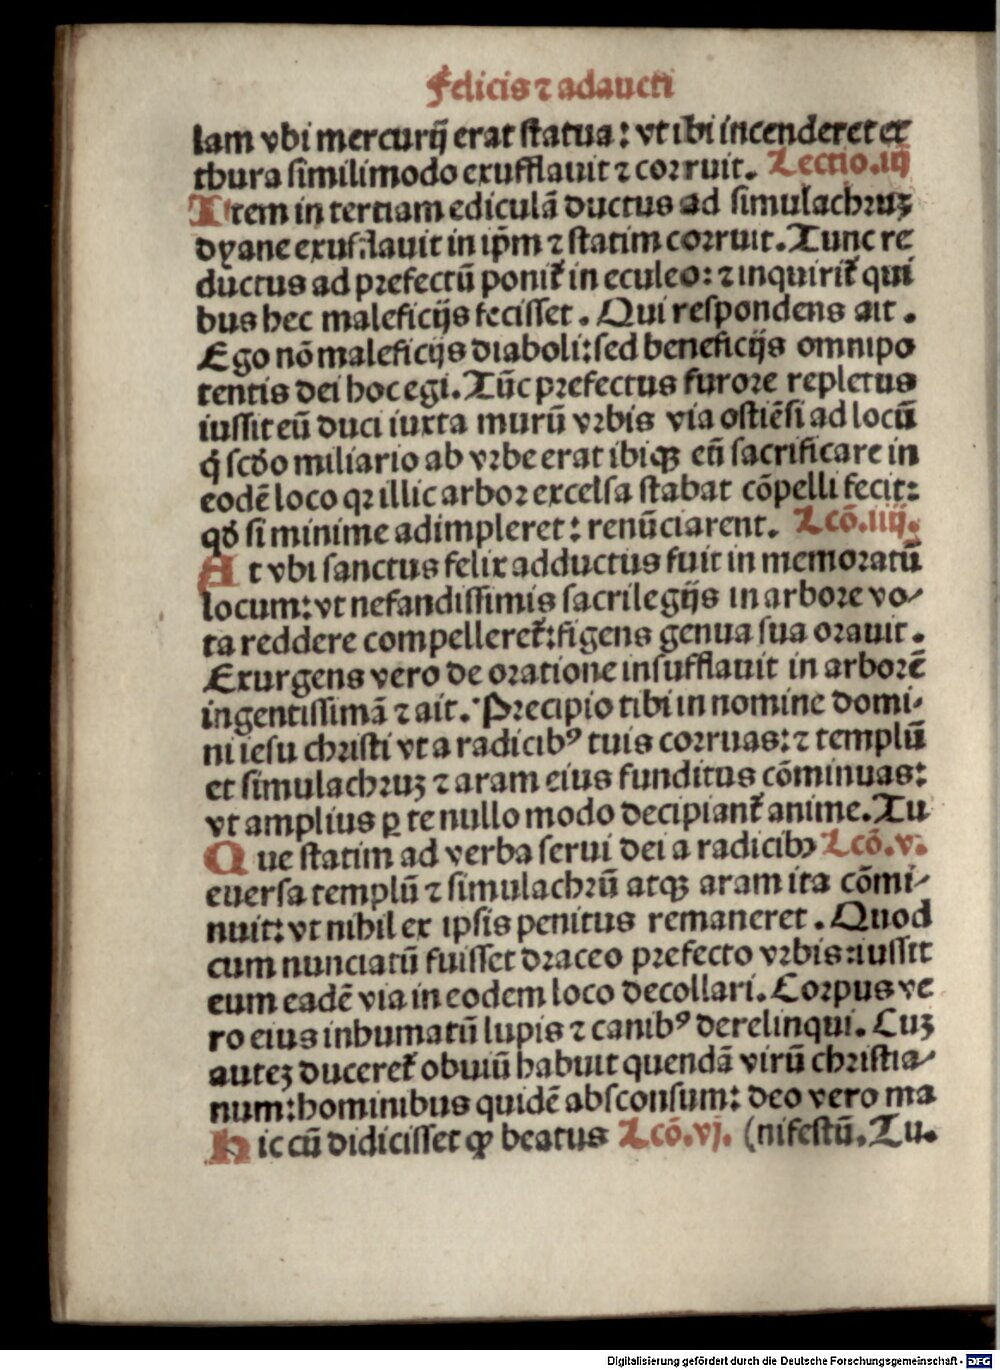 Felicis ⁊ adaucti
lam vbi mercurij erat statua: vt ibi incenderet et
thura similimodo exufflauit ⁊ corruit. Lectio.iij
Item in tertiam ediculā ductus ad simulachruꝫ
dyane exufflauit in ip̄m ⁊ statim corruit. Tunc re
ductus ad prefectū ponit᷑ in eculeo: ⁊ inquirit᷑ qui
bus hec maleficijs fecisset. Qui respondens ait.
Ego nō maleficijs diaboli: sed beneficijs omnipo
tentis dei hoc egi. Tūc prefectus furore repletus
iussit eū duci iuxta murū vrbis via ostiēsi ad locū
q̇ scđo miliario ab vrbe erat ibiqꝫ eū sacrificare in
eodē loco qꝛ illic arbor excelsa stabat cōpelli fecit:
qđ si minime adimpleret: renūciarent. Lcō.iiij.
At vbi sanctus felix adductus fuit in memoratū
locum: vt nefandissimis sacrilegijs in arbore vo⸗
ta reddere compelleret᷑: figens genua sua orauit.
Exurgens vero de oratione insufflauit in arborē
ingentissimā ⁊ ait. Precipio tibi in nomine domi⸗
ni iesu christi vt a radicibꝰ tuis corruas: ⁊ templū
et simulachruꝫ ⁊ aram eius funditus cōminuas:
vt amplius ꝑ te nullo modo decipiant᷑ anime. Tu
Que statim ad verba serui dei a radicibꝫ Lcō.v.
euersa templū ⁊ simulachrū atqꝫ aram ita cōmi⸗
nuit: vt nihil ex ipsis penitus remaneret. Quod
cum nunciatū fuisset draceo prefecto vrbis: iussit
eum eadē via in eodem loco decollari. Corpus ve
ro eius inhumatū lupis ⁊ canibꝰ derelinqui. Cuꝫ
auteꝫ duceret᷑ obuiū habuit quendā virū christia⸗
num: hominibus quidē absconsum: deo vero ma
Hic cū didicisset ꝙ beatus Lcō.vj. (nifestū. Tu.
Digitalisierung gefördert durch die Deutsche Forschungsgemeinschaft - DFG